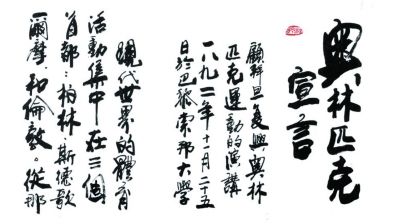 奥林匹克
宣言
顧拜旦复興奥林
匹克運動的演講
一八九二年十一月二十五
日於巴黎索邦大學
現代世界的體育
活動集中在三個
首都：柏林、斯德歌
爾摩、和倫敦。從那